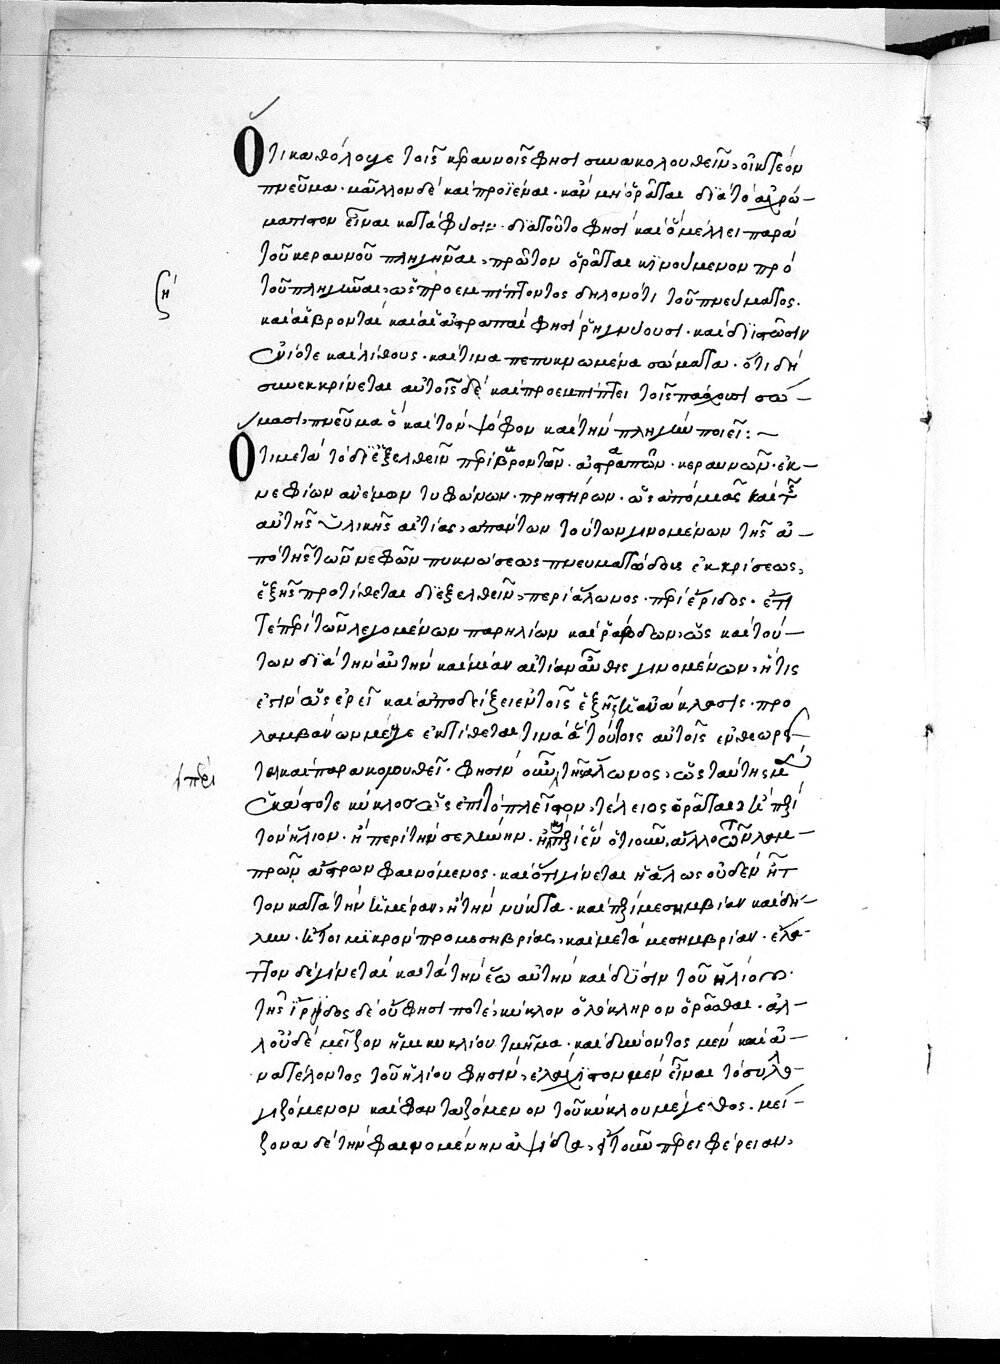 Ὅτι καθόλου γε τοῖς κεραυνοῖς φησὶ συνακολουθεῖν, οἰητέον
πνεῦμα· μᾶλλον δὲ καὶ προϊέναι· κἂν μὴ ὁρᾶται διὰ τὸ ἀχρώ-
μάτιστον εἶναι κατὰ φύσιν· διατοῦτο φησὶ καὶ ὃ μέλλει παρὰ
τοῦ κεραυνοῦ πληγῆναι, πρῶτον ὁρᾶται κινούμενον πρὸ
τοῦ πληγῆναι, ὡς προεμπίπτοντος δηλονότι τοῦ πνεύματος.
καὶ αἱ βρονταὶ καὶ αἱ ἀστραπαὶ φησὶ ῥηγνύουσι· καὶ διϊστῶσιν
ἐνίοτε καὶ λίθους· καὶ τινα πεπυκνωμένα σώματα· ὅτι δὴ
συνεκκρίνεται αὐτοῖς δὲ καὶ προεμπίπτει τοῖς πάσχουσι σώ-
μασι πνεῦμα ὃ καὶ τὸν ψόφον καὶ τὴν πληγὴν ποιεῖ:~
Ὅτι μετὰ τὸ διεξελθεῖν περὶ βροντῶν· ἀστραπῶν· κεραυνῶν· ἐκ-
νεφίων ἀνέμων τυφώνων· πρηστήρων· ὡς ἀπὸ μιᾶς καὶ τ
αὐτῆς ὑλικῆς αἰτίας, ἁπάντων τούτων γινομένων τῆς ἀ-
πὸ τῆς τῶν νεφῶν πυκνώσεως πνευματώδους ἐκκρίσεως,
ἑξῆς προτίθεται διεξελθεῖν, περὶ ἅλωνος· περὶ ἔριδος· ἔτι
τε περὶ τῶν λεγομένων παρηλίων καὶ ῥάβδων, ὡς καὶ τού-
των διὰ τὴν αὐτὴν καὶ μίαν αἰτίαν αὖθις γινομένων, ἥτις
ἐστὶν ὡς ἐρεῖ καὶ ἀποδείξει ἐν τοῖς ἑξῆς ἡ ἀνάκλασις· προ
λαμβάνων μέν γε ἐκτίθεται τινὰ ἃ τούτοις αὐτοῖς ἐνθεωρεῖ
ται καὶ παρακολουθεῖ· φησὶν οὖν τῆς ἅλωνος, ὡς ταύτης μὲν
ἑκάστοτε κύκλος ὡς ἐπιτοπλεῖστον, τέλειος ὁρᾶται, ἢ περὶ
τὸν ἥλιον· ἢ περὶ τὴν σελήνην· ἢ περὶ ἓν ὁτιοῦν ἄλλο τῶν λαμ-
πρῶν ἄστρων φαινόμενος· καὶ ὅτι γίνεται ἡ ἅλως οὐδὲν ἧτ
τον κατὰ τὴν ἡμέραν, ἢ τὴν νύκτα· καὶ περὶ μεσημβρίαν καὶ δεί-
λην· ἤτοι μικρὸν προμεσημβρίας, καὶ μετὰ μεσημβρίαν· ἔλα-
ττον δὲ γίνεται κατὰ τὴν ἕω αὐτὴν καὶ δύσιν τοῦ ἡλίου·
τῆς ἴριδος δὲ οὔ φησι ποτὲ, κύκλον ὁλόκληρον ὁρᾶσθαι· ἀλ-
λ' οὐδὲ μεῖζον ἡμικυκλίου τμῆμα· καὶ δύνοντος μὲν καὶ ἀ-
νατέλοντος τοῦ ἡλίου φησὶν, ἐλάχιστον μὲν εἶναι τὸ συλλο-
γιζόμενον καὶ φανταζόμενον τοῦ κύκλου μέγεθος. μεί-
ζονα δὲ τὴν φαινομένην ἁψῖδα, ἤτουν περιφέρειαν,